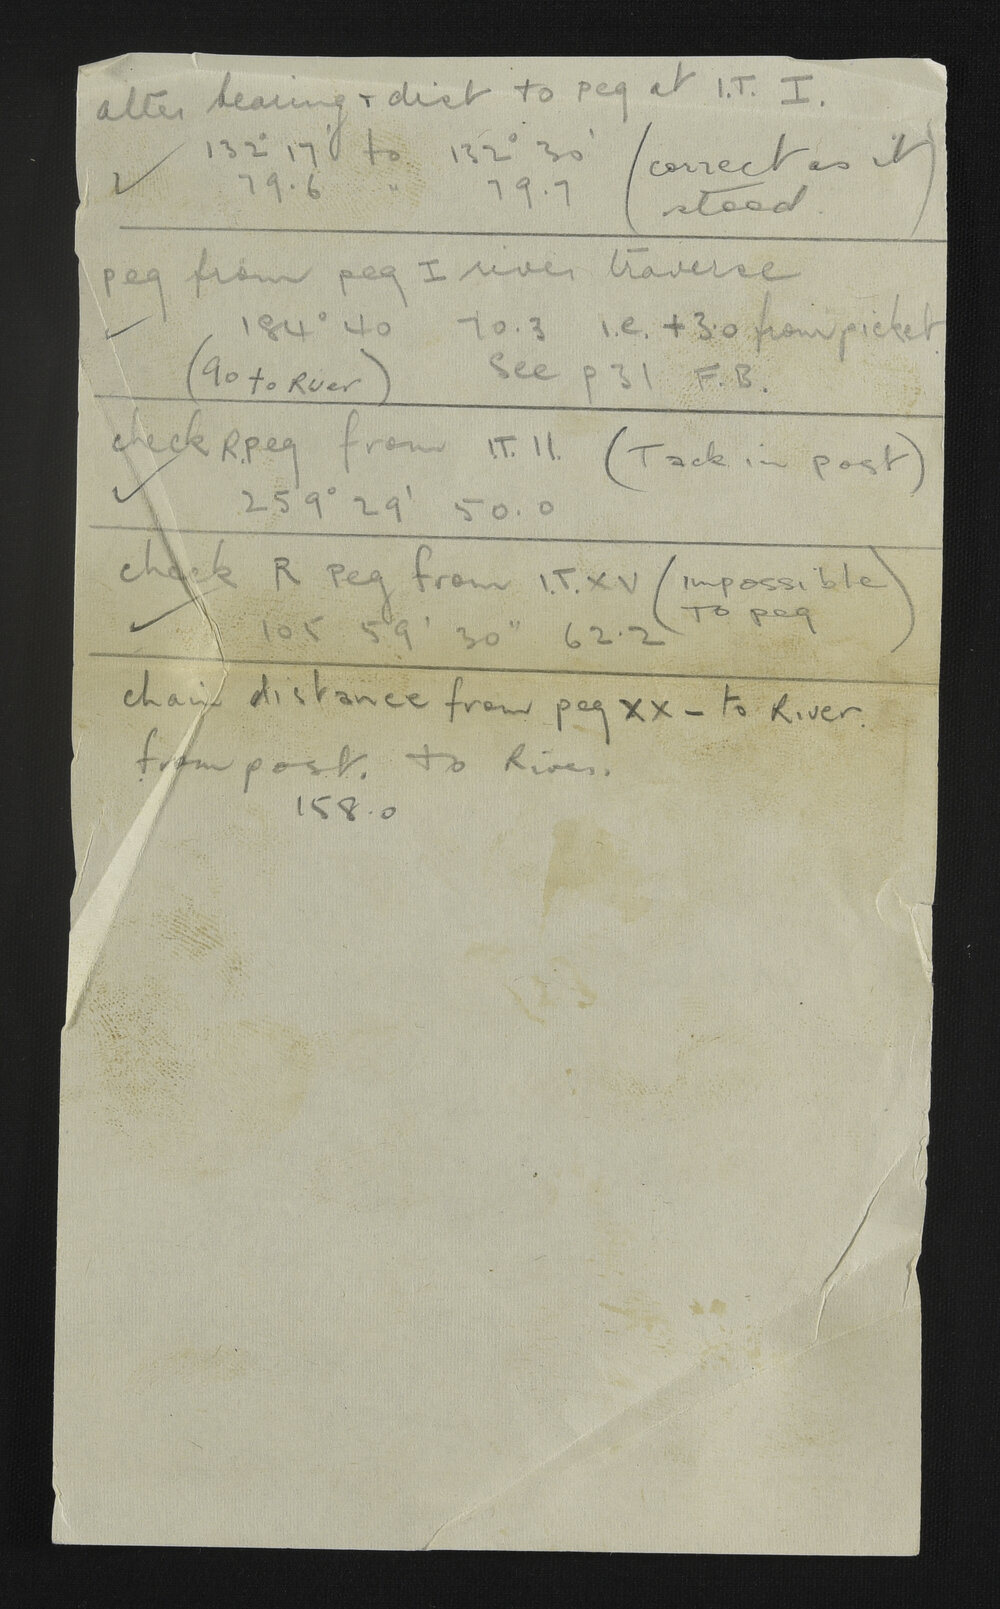 alter bearing + dist to peg at I.T. I.
132° 17' to 132° 30' (correct as it
✓ 79.6 " 79.7 stood.)
peg from peg I river traverse
✓ 184° 40 70.3 i.e. +3.0 from picket
(90 to River) See p 31 F.B.
check R.peg from I.T. II. (Tack in post)
✓ 259° 29' 50.0
check R peg from I.T. XV (impossible
to peg)
✓ 105 59' 30" 62.2
chain distance from peg XX - to River.
from post. to River.
158.0